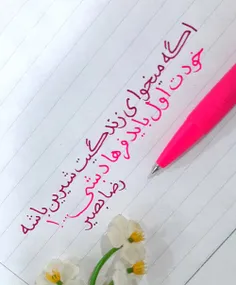 اگه میخوای زندگیت شیرین باشه
خودت اول باید فرهاد شی...!
رضا بصیر